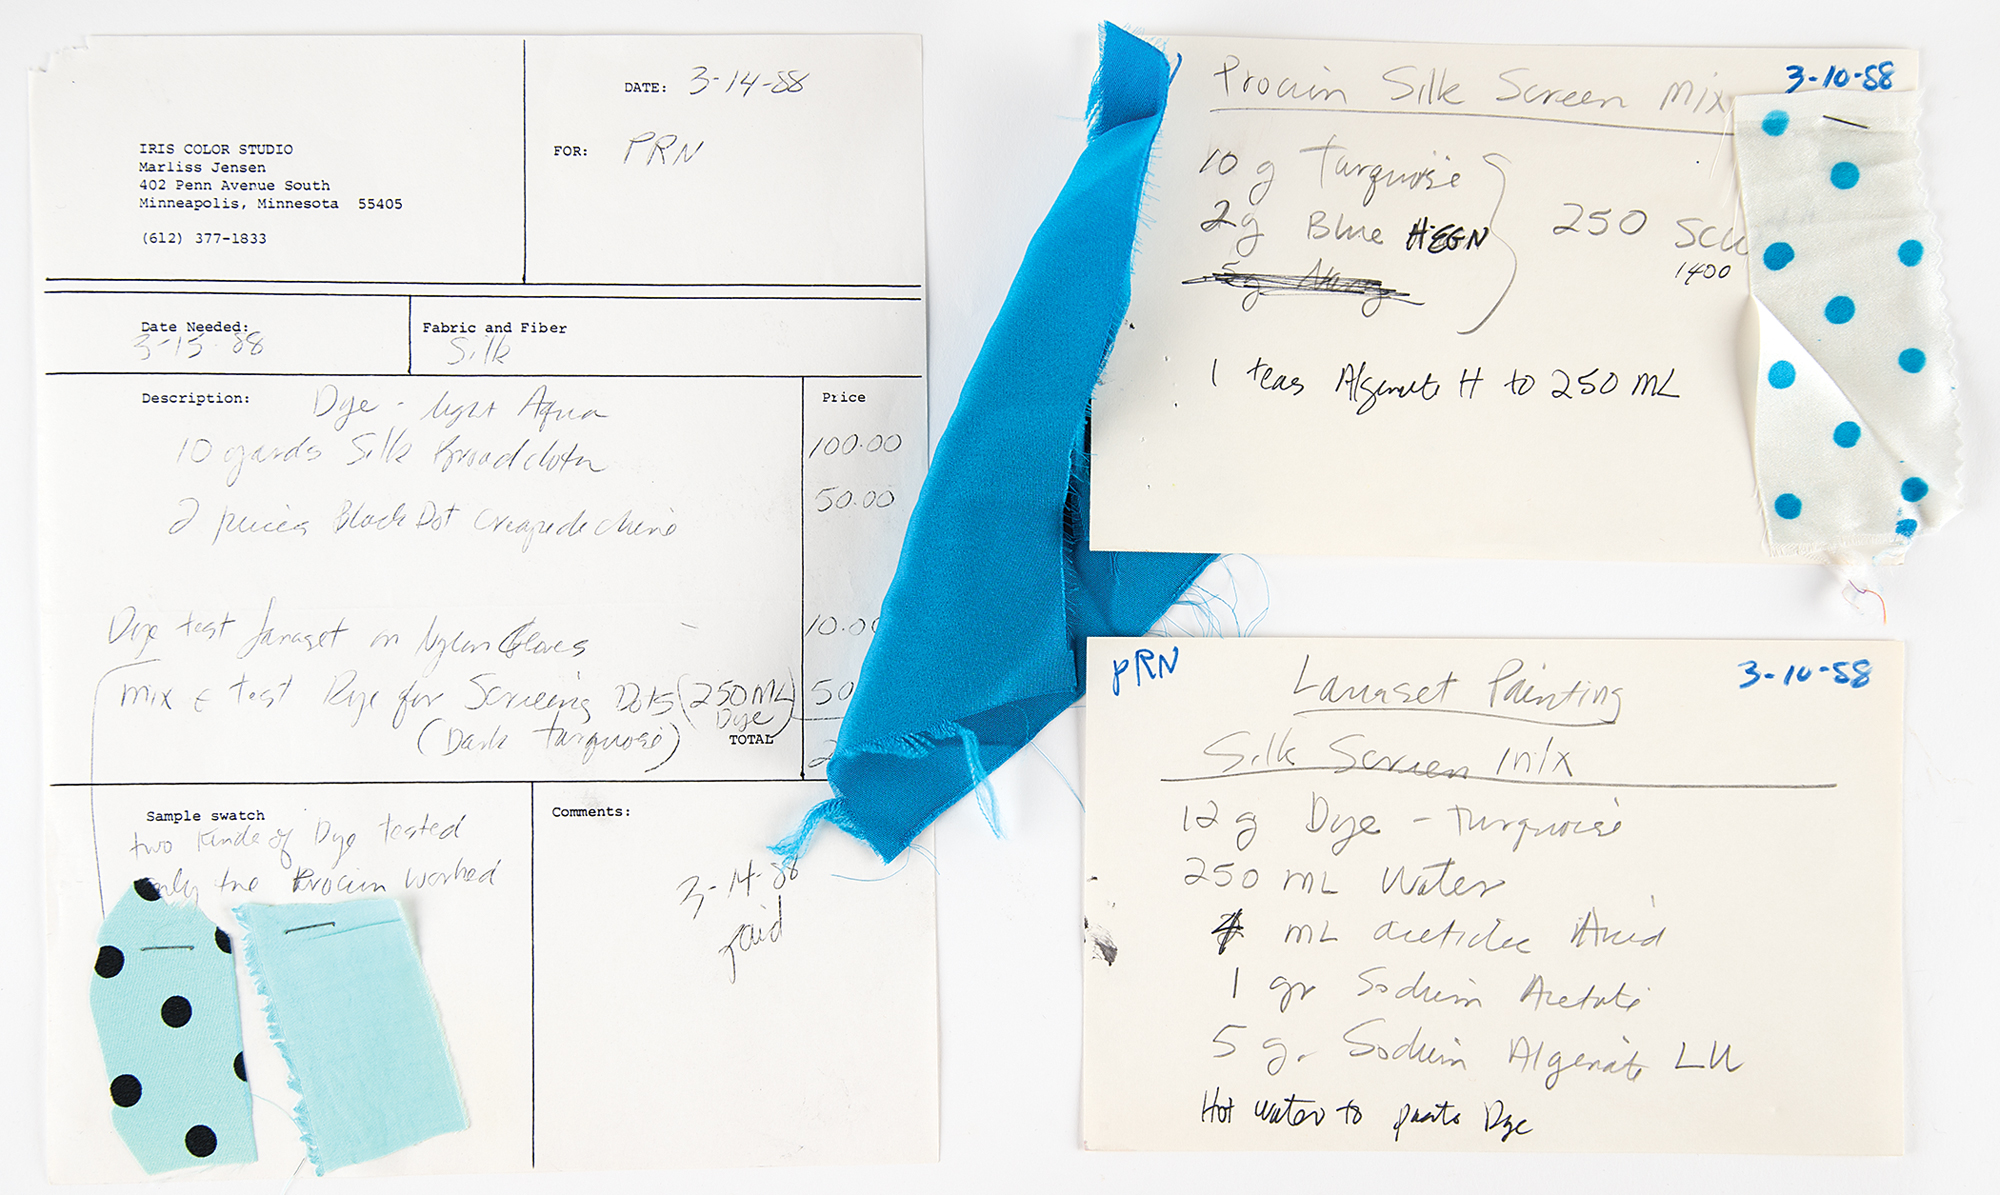 IRIS COLOR STUDIO
Marliss Jensen
402 Penn Avenue South
Minneapolis, Minnesota 55405
(612) 377-1833
DATE: 3-14-88
FOR: PRN
Date Needed:
3-15-88
Fabric and Fiber
Silk
Description:
Price
Dye - light Aqua
10 yards Silk Broadcloth 100.00
2 pieces Black Dot 50.00
Dye test Lanaset on Nylon Gloves 10.00
mix & test Dye for Screeing Dots (250 ML Dye) 50
(Dark turquoise)
TOTAL 2
Sample swatch
two Kinds of Dye tested
only the Procion worked
Comments:
3-14-88
paid
Procion Silk Screen Mix
3-10-88
10 g Turquoise
2 g Blue HEGN
250
1400
1 teas H to 250 ML
PRN
3-10-88
Lanaset Painting
Silk Screen mix
12 g Dye - turquoise
250 mL Water
mL Acid
1 gr Sodium Acetate
5 g. Sodium Algenate
Hot water to paste Dye